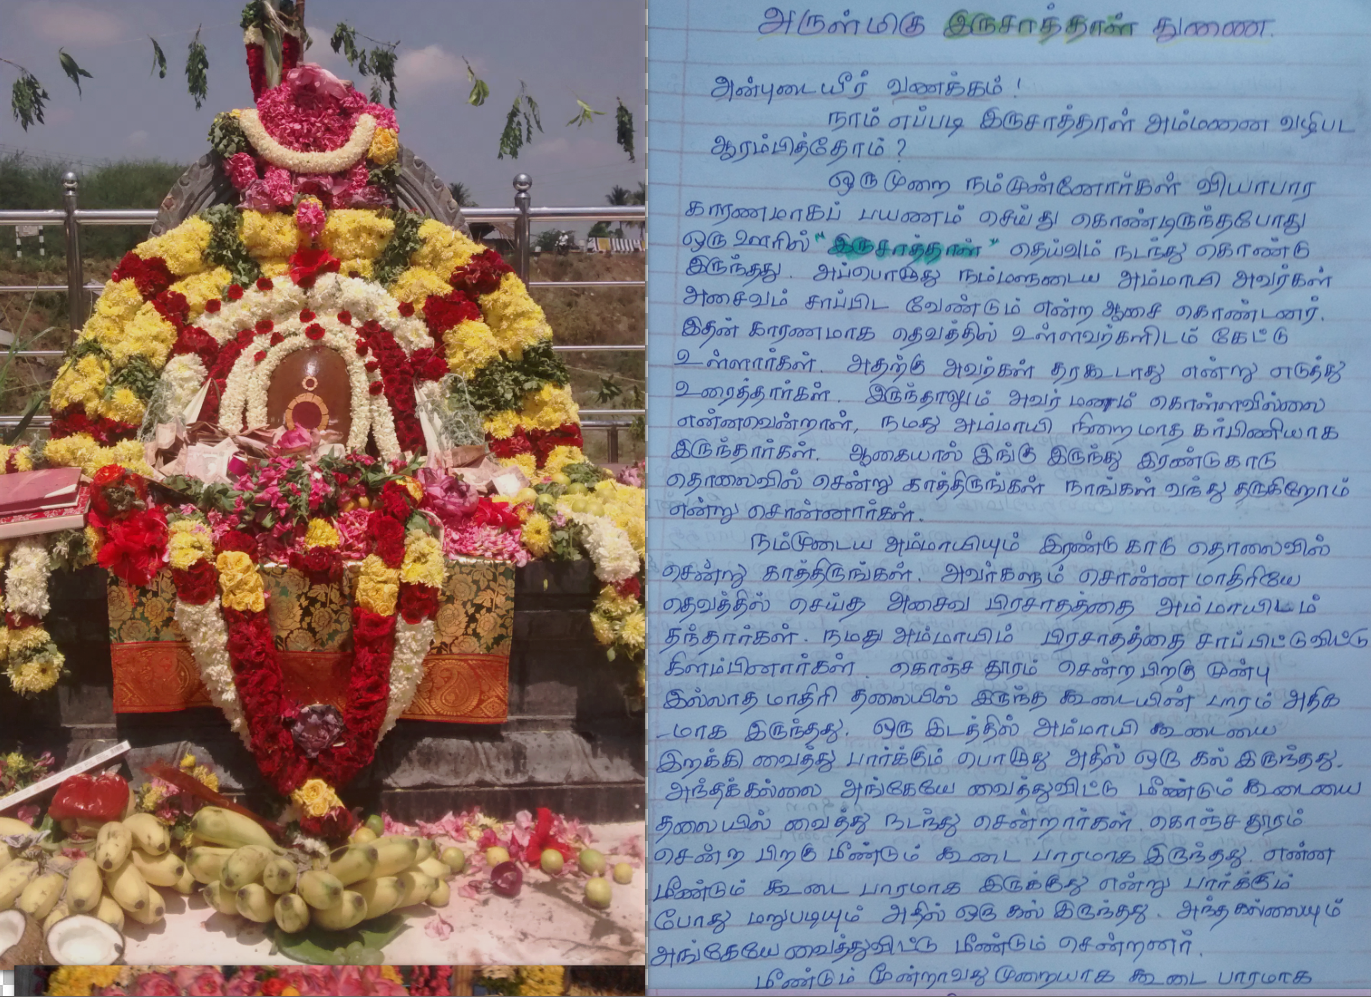 அருள்மிகு இருசாத்தாள் துணை.
அன்புடையீர் வணக்கம் !
நாம் எப்படி இருசாத்தாள் அம்மனை வழிபட
ஆரம்பித்தோம் ?
ஒரு முறை நம்முன்னோர்கள் வியாபார
காரணமாகப் பயணம் செய்து கொண்டிருந்தபோது
ஒரு ஊரில் "இருசாத்தாள்" தெய்வம் நடந்து கொண்டு
இருந்தது. அப்பொழுது நம்மளுடைய அம்மாயி அவர்கள்
அசைவம் சாப்பிட வேண்டும் என்ற ஆசை கொண்டனர்.
இதன் காரணமாக தெவத்தில் உள்ளவர்களிடம் கேட்டு
உள்ளார்கள். அதற்கு அவர்கள் தரகூடாது என்று எடுத்து
உரைத்தார்கள். இருந்தாலும் அவர் மனம் கொள்ளவில்லை
என்னவென்றாள், நமது அம்மாயி நிறைமாத கர்பிணியாக
இருந்தார்கள். ஆகையால் இங்கு இருந்து இரண்டு காடு
தொலைவில் சென்று காத்திருங்கள் நாங்கள் வந்து தருகிறோம்
என்று சொன்னார்கள்.
நம்முடைய அம்மாயியும் இரண்டு காடு தொலைவில்
சென்று காத்திருங்கள். அவர்களும் சொன்ன மாதிரியே
தெவத்தில் செய்த அசைவ பிரசாதத்தை அம்மாயிடம்
தந்தார்கள். நமது அம்மாயிம் பிரசாதத்தை சாப்பிட்டுவிட்டு
கிளம்பினார்கள். கொஞ்ச தூரம் சென்ற பிறகு முன்பு
இல்லாத மாதிரி தலையில் இருந்த கூடையின் பாரம் அதிக
-மாக இருந்தது. ஒரு இடத்தில் அம்மாயி கூடையை
இறக்கி வைத்து பார்க்கும் பொழுது அதில் ஒரு கல் இருந்தது.
அந்தக்கல்லை அங்கேயே வைத்துவிட்டு மீண்டும் கூடையை
தலையில் வைத்து நடந்து சென்றார்கள். கொஞ்ச தூரம்
சென்ற பிறகு மீண்டும் கூடை பாரமாக இருந்தது. என்ன
மீண்டும் கூடை பாரமாக இருக்குது என்று பார்க்கும்
போது மறுபடியும் அதில் ஒரு கல் இருந்தது. அந்த கல்லையும்
அங்கேயே வைத்துவிட்டு மீண்டும் சென்றனர்.
மீண்டும் மூன்றாவது முறையாக கூடை பாரமாக